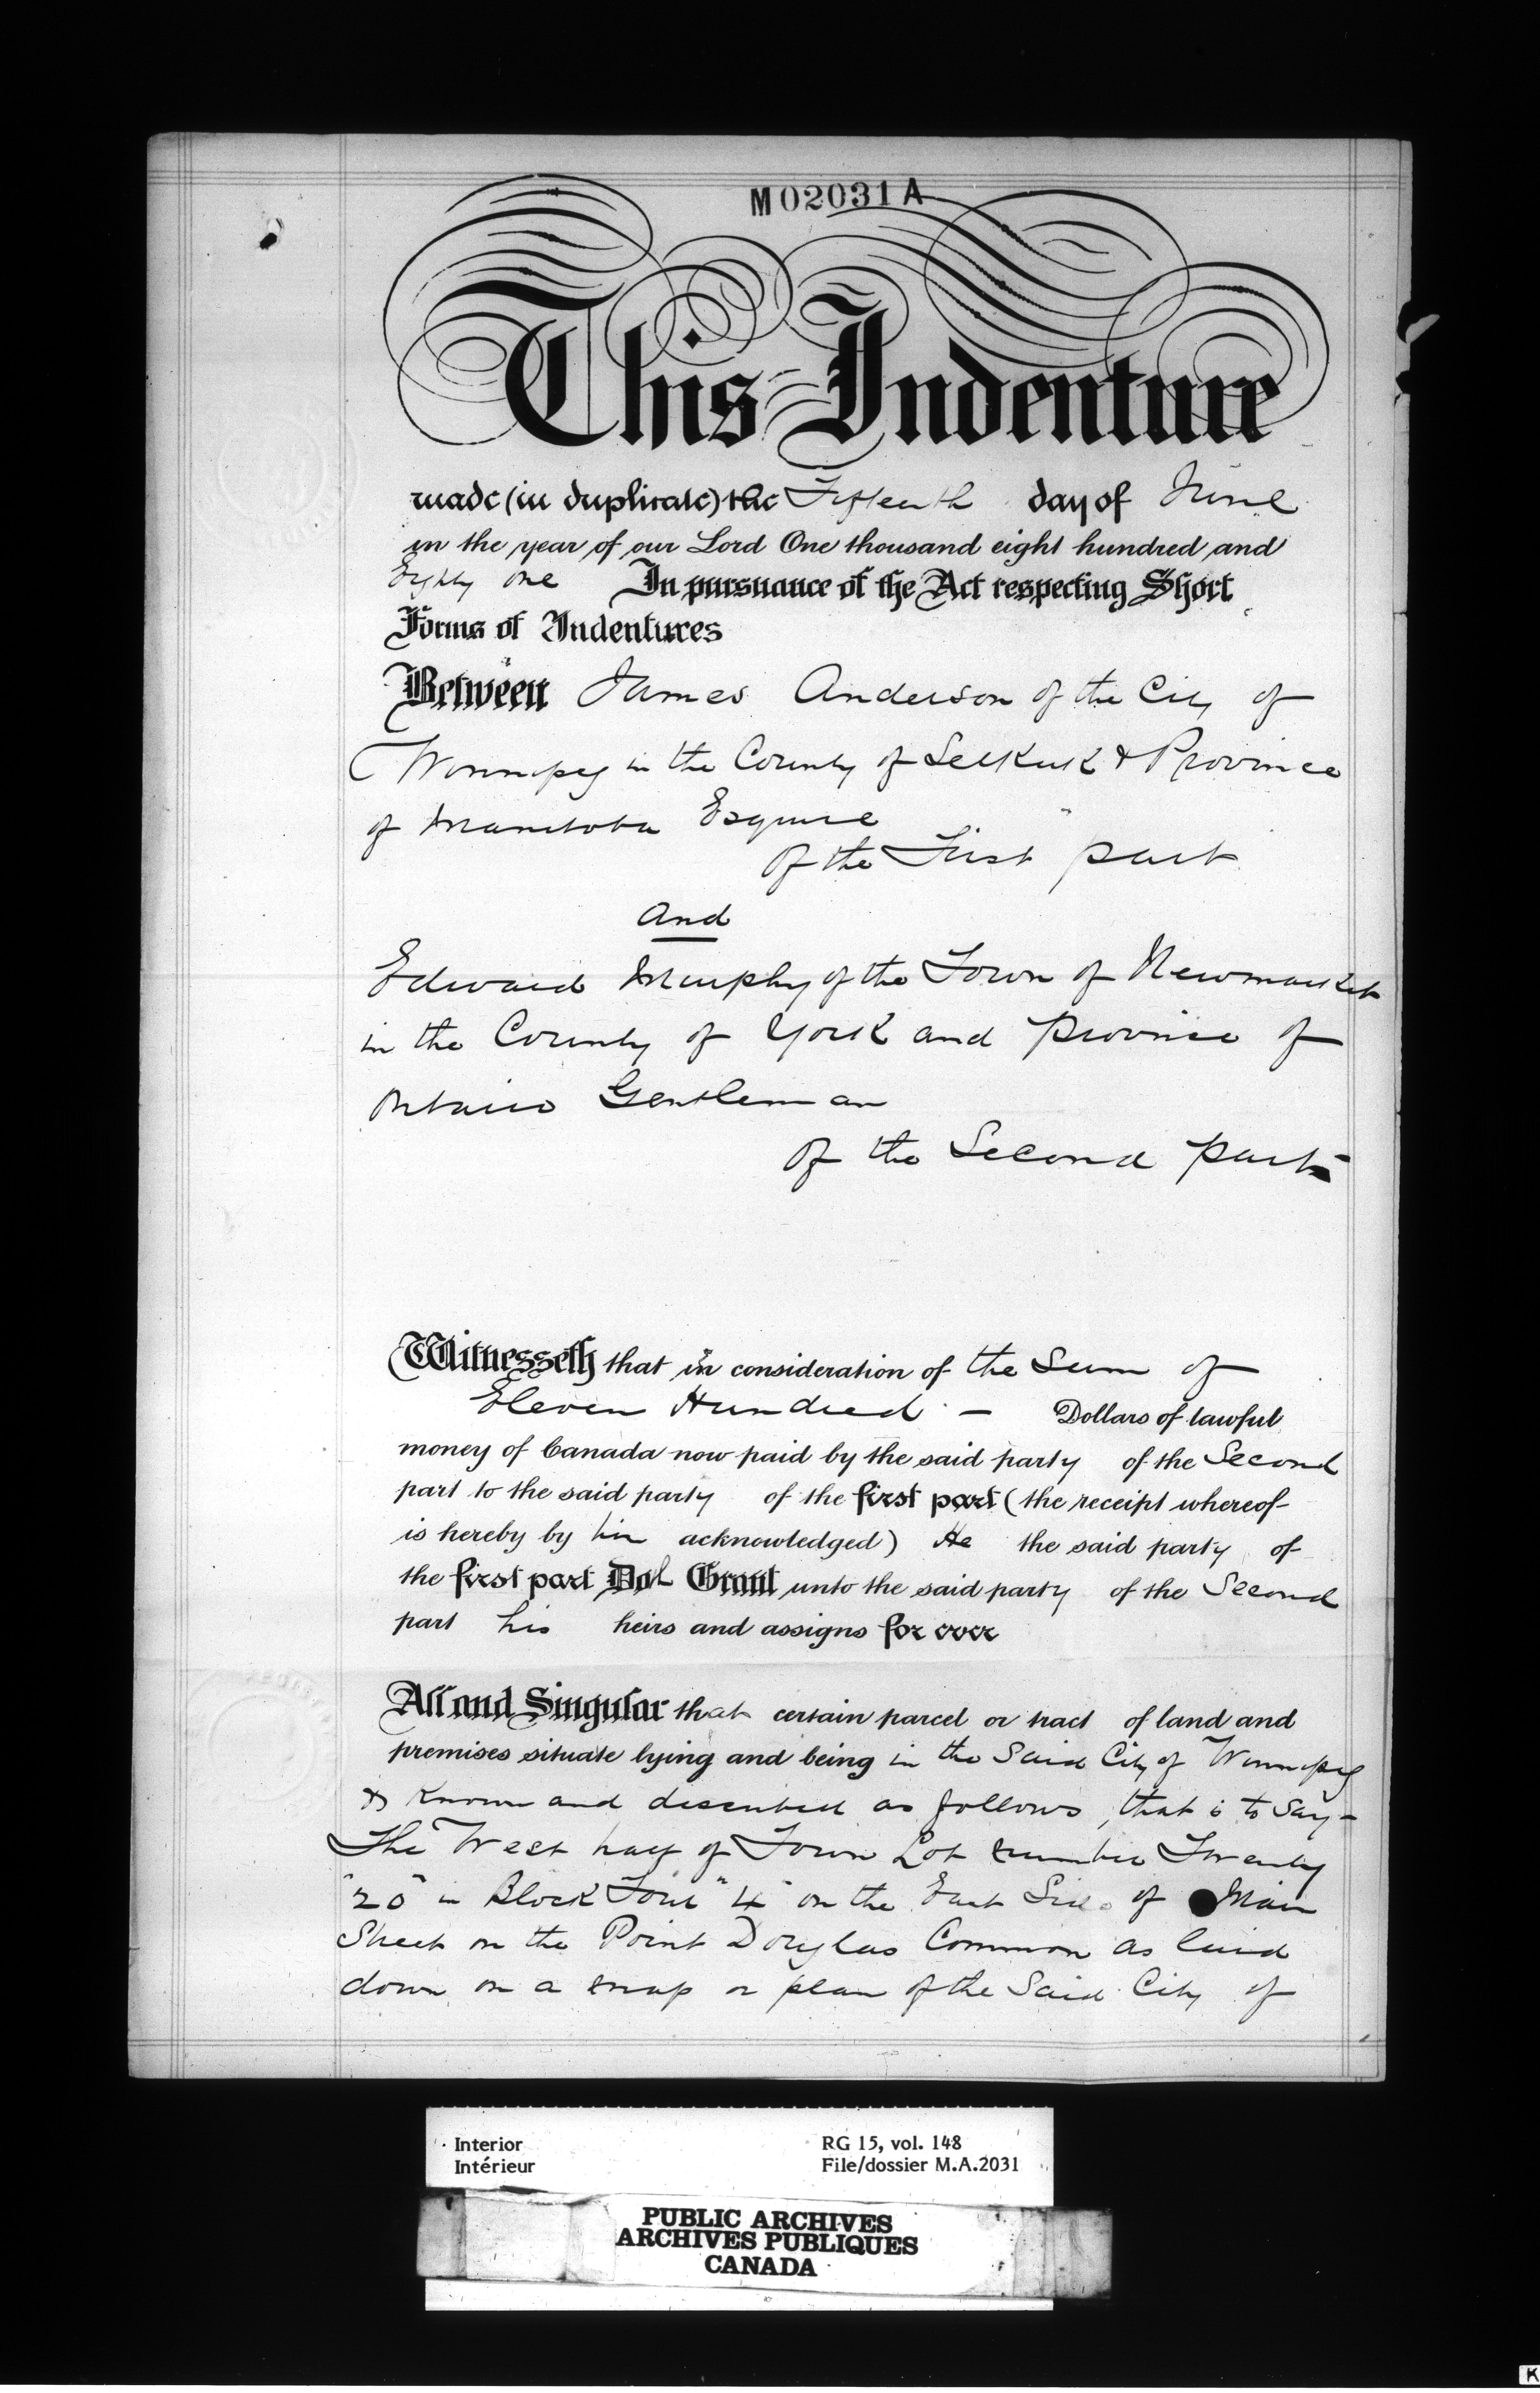 M02031A
This Indenture
made (in duplicate) the Fifteenth day of June
in the year of our Lord One thousand eight hundred and
Eighty one In pursuance of the Act respecting Short
Forms of Indentures
Between James Anderson of the City of
Winnipeg in the County of Selkirk & Province
of Manitoba Esquire
of the First part
And
Edward Murphy of the Town of Newmarket
in the County of York and Province of
Ontario Gentleman
of the Second part
Witnesseth that in consideration of the Sum of
Eleven Hundred - Dollars of lawful
money of Canada now paid by the said party of the Second
part to the said party of the first part (the receipt whereof
is hereby by him acknowledged) He the said party of
the first part Doth Grant unto the said party of the Second
part his heirs and assigns for ever
All and Singular that certain parcel or tract of land and
premises situate lying and being in the Said City of Winnipeg
& Known and described as follows, that is to Say-
The West half of Town Lot number Twenty
"20" in Block Four "4" on the East Side of Main
Street on the Point Douglas Common as laid
down on a map or plan of the Said City of
Interior RG 15, vol. 148
Intérieur File/dossier M.A.2031
PUBLIC ARCHIVES
ARCHIVES PUBLIQUES
CANADA
K